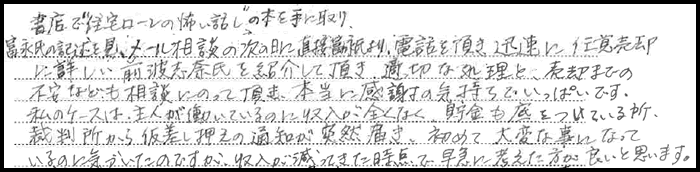 書店で"住宅ローンの怖い話し"の本を手に取り、
富永氏の記述を見、メール相談の次の日に直接富永氏より、電話を頂き迅速に任意売却
に詳しい前波志奈氏を紹介して頂き 適切な処理と、売却までの
不安なども相談にのって頂き、本当に感謝の気持ちでいっぱいです。
私のケースは、主人が働いているのに収入が全くなく、貯金も底をついている所、
裁判所から仮差し押えの通知が突然届き、初めて大変な事になって
いるのに気づいたのですが、収入が減ってきた時点で早急に考えた方が良いと思います。